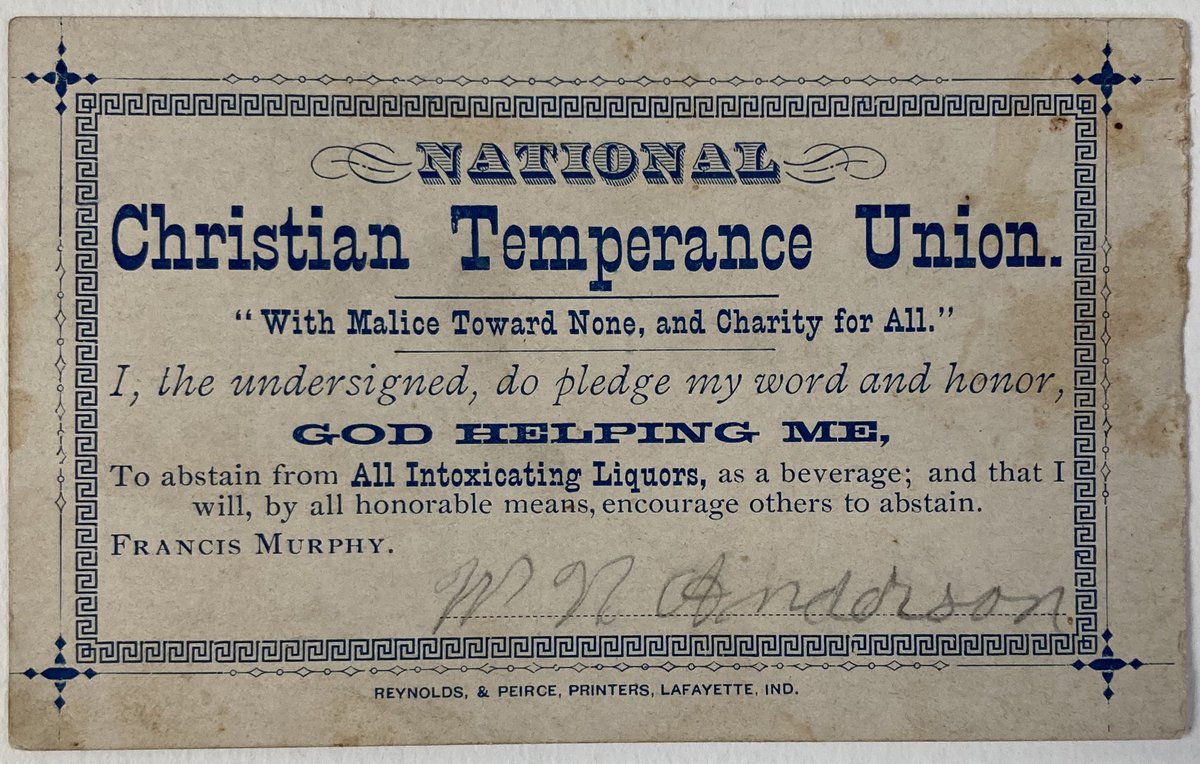 NATIONAL
Christian Temperance Union.
"With Malice Toward None, and Charity for All."
I, the undersigned, do pledge my word and honor,
GOD HELPING ME,
To abstain from All Intoxicating Liquors, as a beverage; and that I
will, by all honorable means, encourage others to abstain.
FRANCIS MURPHY.
W N Anderson
REYNOLDS, & PEIRCE, PRINTERS, LAFAYETTE, IND.